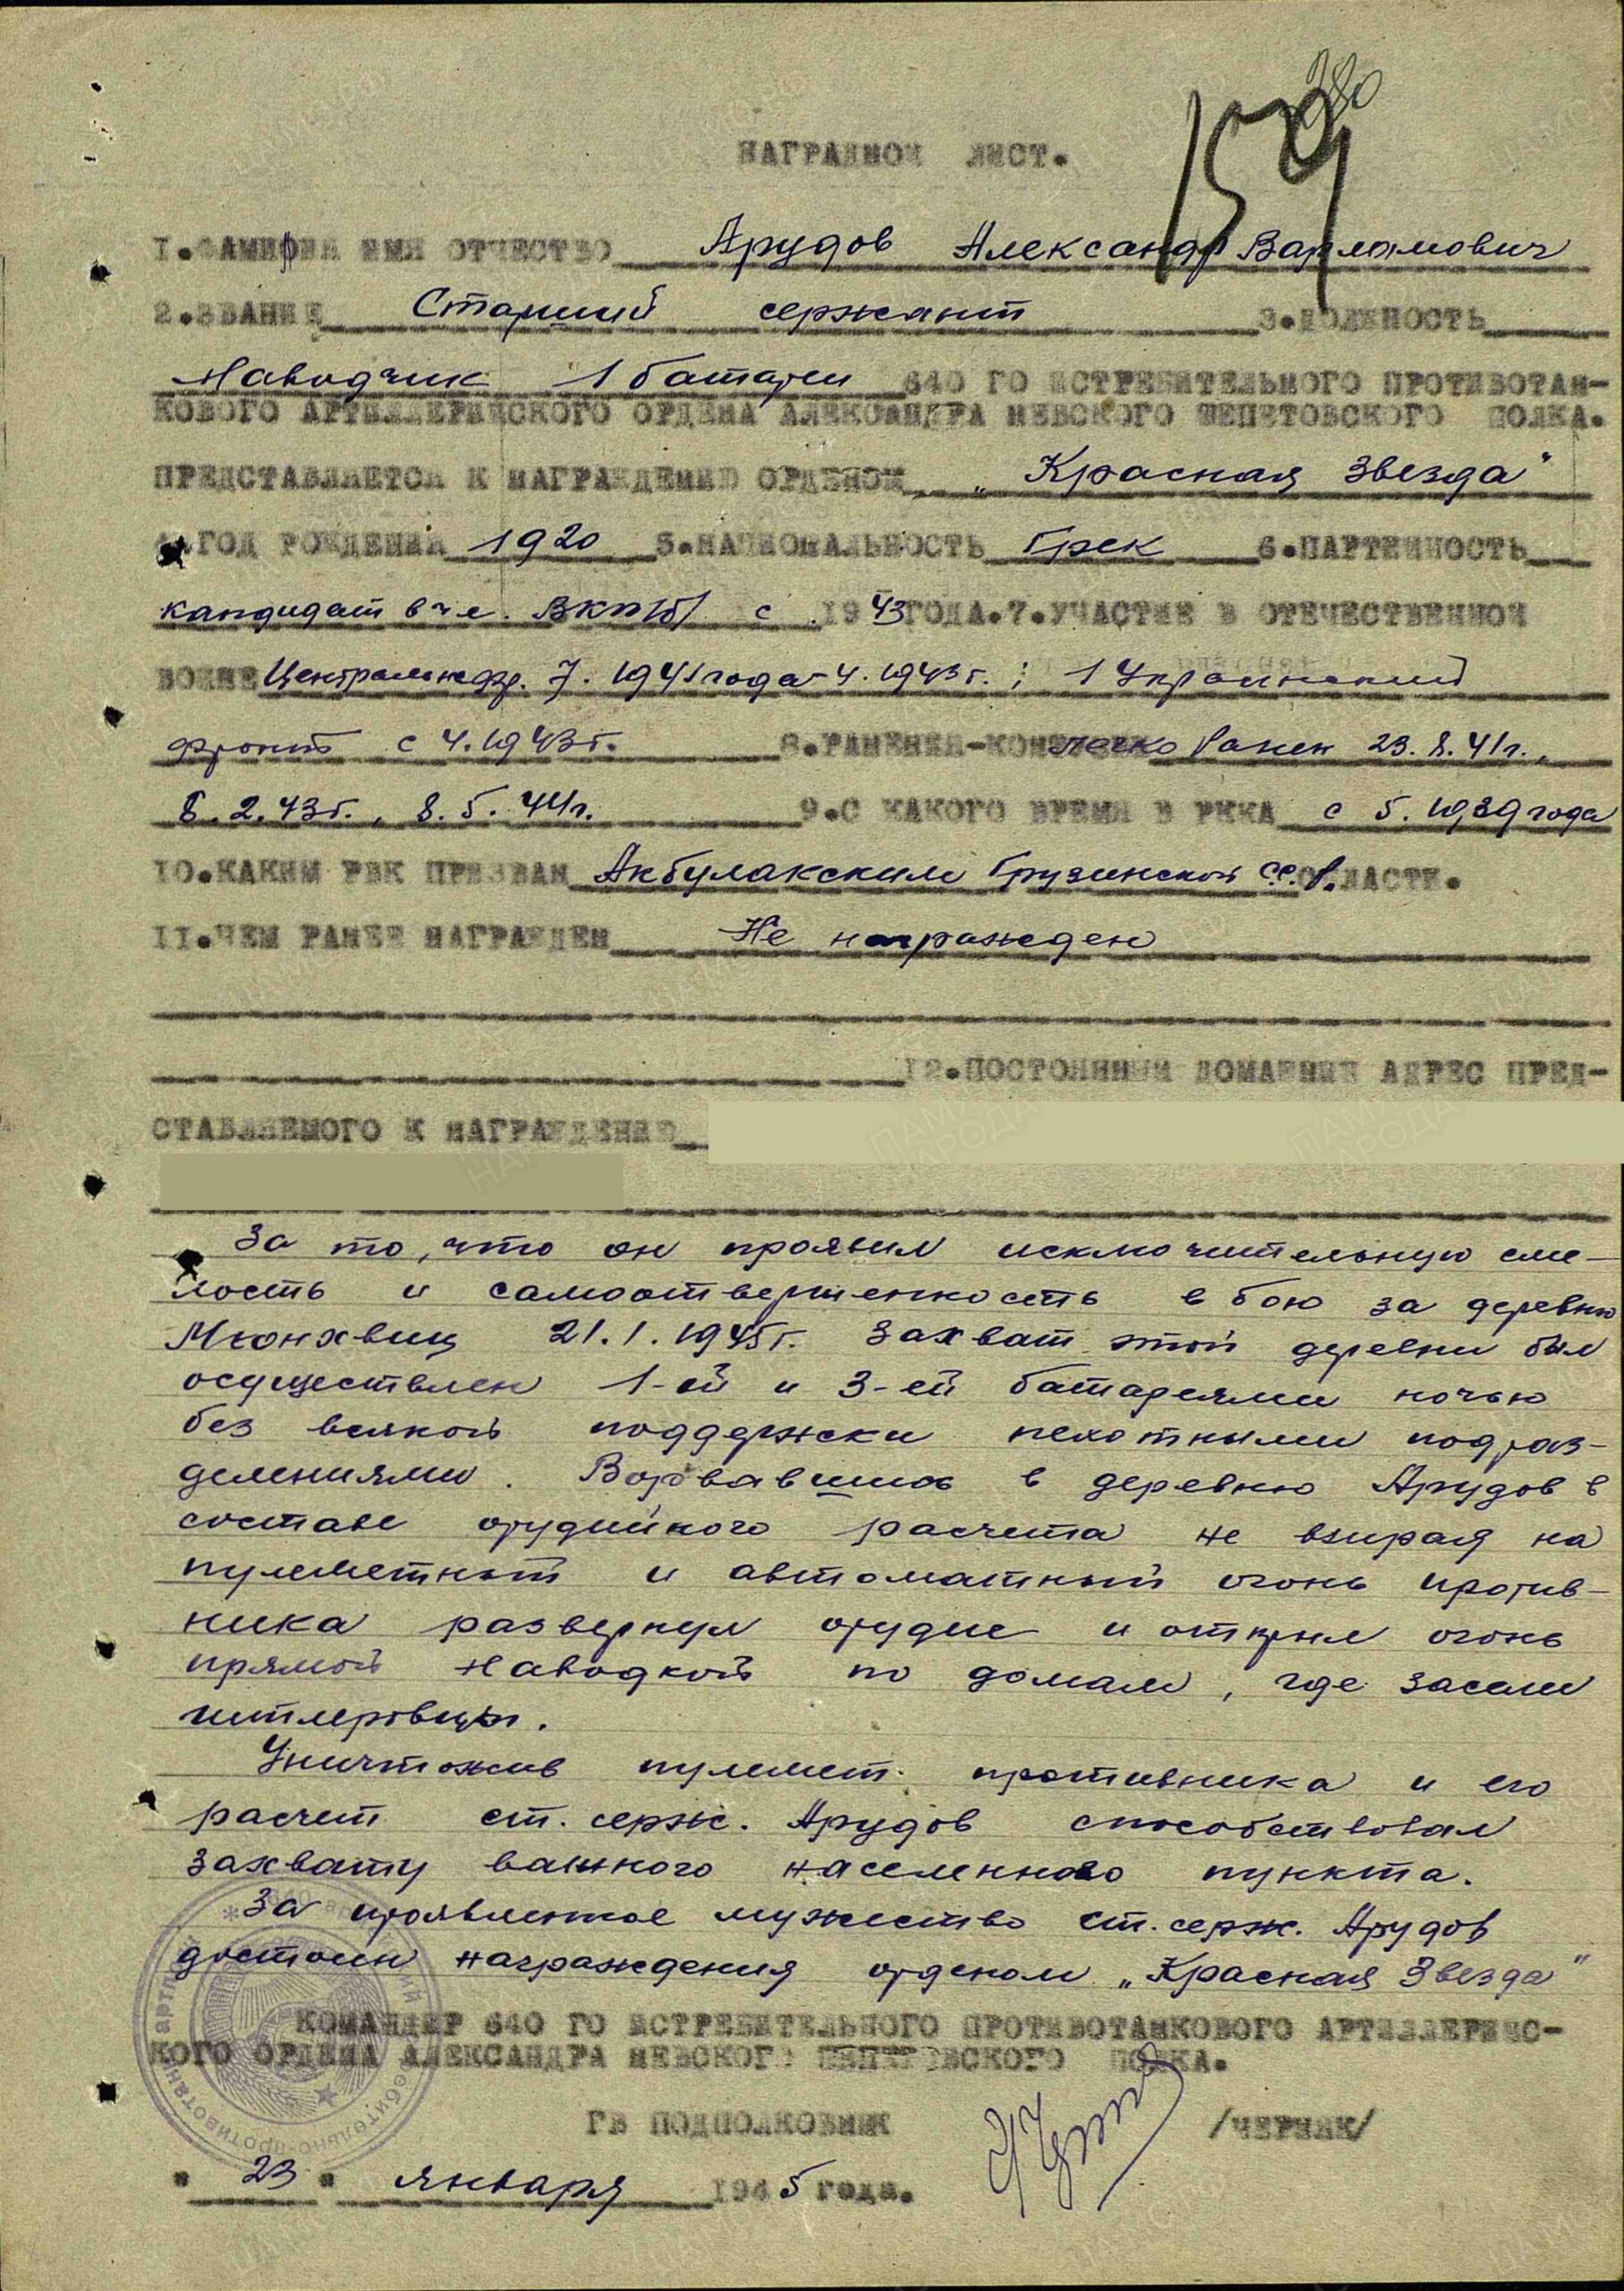 380
159
НАГРАДНОЙ ЛИСТ.
1.ФАМИЛИЯ ИМЯ ОТЧЕСТВО Арудов Александр Варламович
2.ЗВАНИЕ Старший сержант 3.ДОЛЖНОСТЬ
Наводчик 1 батареи 640 ГО ИСТРЕБИТЕЛЬНОГО ПРОТИВОТАН-
КОВОГО АРТИЛЛЕРИЙСКОГО ОРДЕНА АЛЕКСАНДРА НЕВСКОГО ШЕПЕТОВСКОГО ПОЛКА.
ПРЕДСТАВЛЯЕТСЯ К НАГРАЖДЕНИЮ ОРДЕНОМ „Красная Звезда"
4.ГОД РОЖДЕНИЯ 1920 5.НАЦИОНАЛЬНОСТЬ Грек 6.ПАРТИЙНОСТЬ
кандидат в чл. ВКП/б/ с 1943 ГОДА.7.УЧАСТИЕ В ОТЕЧЕСТВЕННОЙ
ВОЙНЕ Центральн.фр. 7. 1941 года - 4. 1943 г. ; 1 Украинский
фронт с 4.1943 г. 8.РАНЕНИЯ-КОНТУЗИИ легко ранен 23. 8. 41 г.,
8. 2. 43 г., 8. 5. 44 г. 9.С КАКОГО ВРЕМЯ В РККА с 5. 1939 года
10.КАКИМ РВК ПРИЗВАН Акбулакским Грузинской С.С.Р. ОБЛАСТИ.
11.ЧЕМ РАНЕЕ НАГРАЖДЕН Не награжден
12.ПОСТОЯННЫЙ ДОМАШНИЙ АДРЕС ПРЕД-
СТАВЛЯЕМОГО К НАГРАЖДЕНИЮ
За то, что он проявил исключительную сме-
лость и самоотверженность в бою за деревню
Мюнхвиц 21.1.1945 г. Захват этой деревни был
осуществлен 1-ей и 3-ей батареями ночью
без всякой поддержки пехотными подраз-
делениями. Ворвавшись в деревню Арудов в
составе орудийного расчета не взирая на
пулеметный и автоматный огонь против-
ника развернул орудие и открыл огонь
прямой наводкой по домам, где засели
гитлеровцы.
Уничтожив пулемет противника и его
расчет ст. серж. Арудов способствовал
захвату важного населенного пункта.
За проявленное мужество ст. серж. Арудов
достоин награждения орденом „Красная Звезда"
КОМАНДИР 640 ГО ИСТРЕБИТЕЛЬНОГО ПРОТИВОТАНКОВОГО АРТИЛЛЕРИЙС-
КОГО ОРДЕНА АЛЕКСАНДРА НЕВСКОГО ШЕПЕТОВСКОГО ПОЛКА.
ГВ ПОДПОЛКОВНИК /ЧЕРНЯК/
" 23 " января 1945 года.